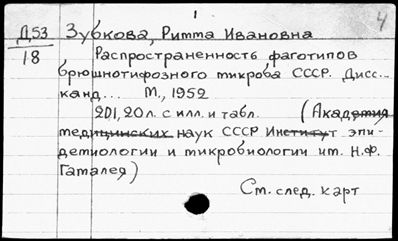 1
4
Д53 Зубкова, Ритта Ивановна
18
Распространенность фаготипов
брюшнотифозного микроба СССР. Дисс...
канд... М., 1952
201, 20 л. с илл. и табл. (Академия
медицинских наук СССР Институт эпи-
демиологии и микробиологии им. Н.Ф.
Гамалея)
См. след. карт